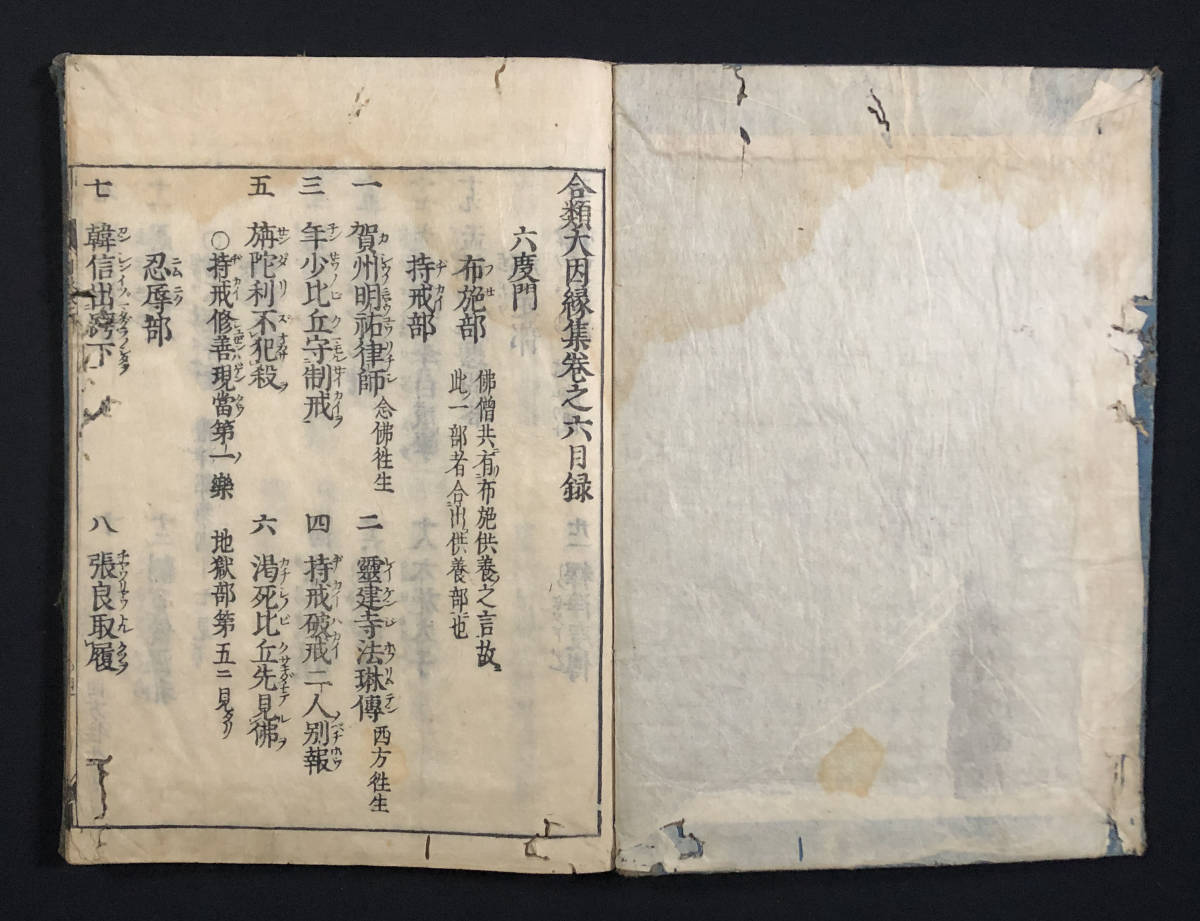 合類大因縁集卷之六目録
六度門
布施部 佛僧共有布施供養之言故
此一部者合出供養部也
持戒部
一 賀州明祐律師 念佛徃生
二 靈建寺法琳傳 西方徃生
三 年少比丘守制戒
四 持戒破戒二人別報
五 旃陀利不犯殺
六 渇死比丘先見佛
○持戒修善現當第一樂 地獄部第五ニ見タリ
忍辱部
七 韓信出跨下
八 張良取履